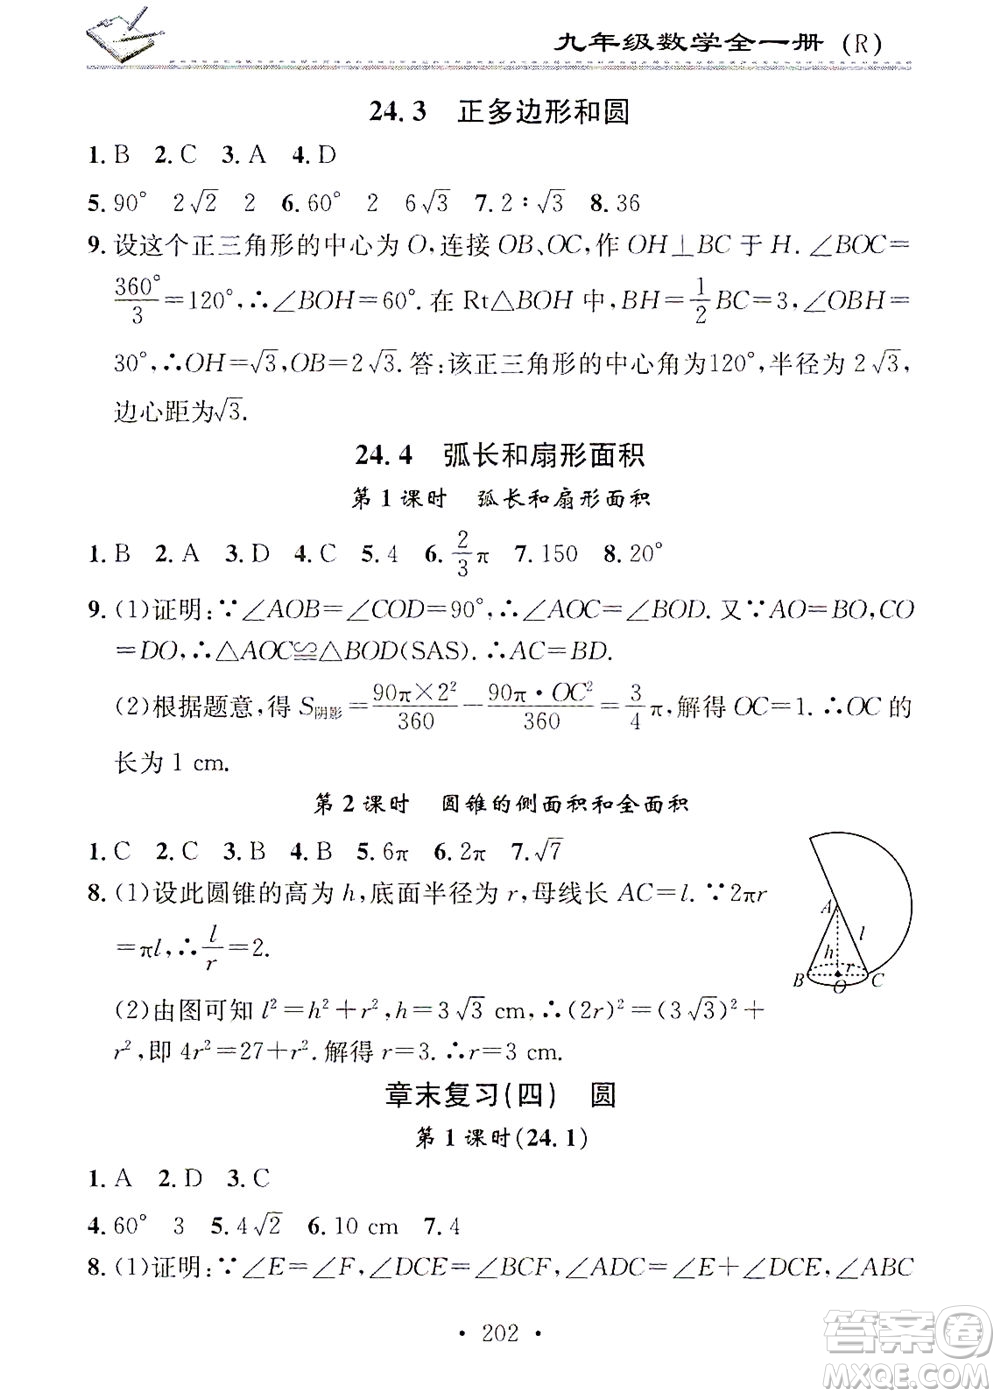 九年级数学全一册 (R)
24.3 正多边形和圆
1.B 2.C 3.A 4.D
5.90° 2√2 2 6.60° 2 6√3 7.2∶√3 8.36
9.设这个正三角形的中心为O,连接OB、OC,作OH⊥BC于H.∠BOC=
360°/3=120°,∴∠BOH=60°.在Rt△BOH中,BH=1/2BC=3,∠OBH=
30°,∴OH=√3,OB=2√3.答:该正三角形的中心角为120°,半径为2√3,
边心距为√3.
24.4 弧长和扇形面积
第1课时 弧长和扇形面积
1.B 2.A 3.D 4.C 5.4 6.2/3π 7.150 8.20°
9.(1)证明:∵∠AOB=∠COD=90°,∴∠AOC=∠BOD.又∵AO=BO,CO
=DO,∴△AOC≌△BOD(SAS).∴AC=BD.
(2)根据题意,得S阴影=90π×2²/360-90π·OC²/360=3/4π,解得OC=1.∴OC的
长为1 cm.
第2课时 圆锥的侧面积和全面积
1.C 2.C 3.B 4.B 5.6π 6.2π 7.√7
8.(1)设此圆锥的高为h,底面半径为r,母线长AC=l.∵2πr
=πl,∴l/r=2.
(2)由图可知l²=h²+r²,h=3√3 cm,∴(2r)²=(3√3)²+
r²,即4r²=27+r².解得r=3.∴r=3 cm.
A
l
h
r
B
O
C
章末复习(四) 圆
第1课时(24.1)
1.A 2.D 3.C
4.60° 3 5.4√2 6.10 cm 7.4
8.(1)证明:∵∠E=∠F,∠DCE=∠BCF,∠ADC=∠E+∠DCE,∠ABC
·202·
答案圈
MXQE.COM